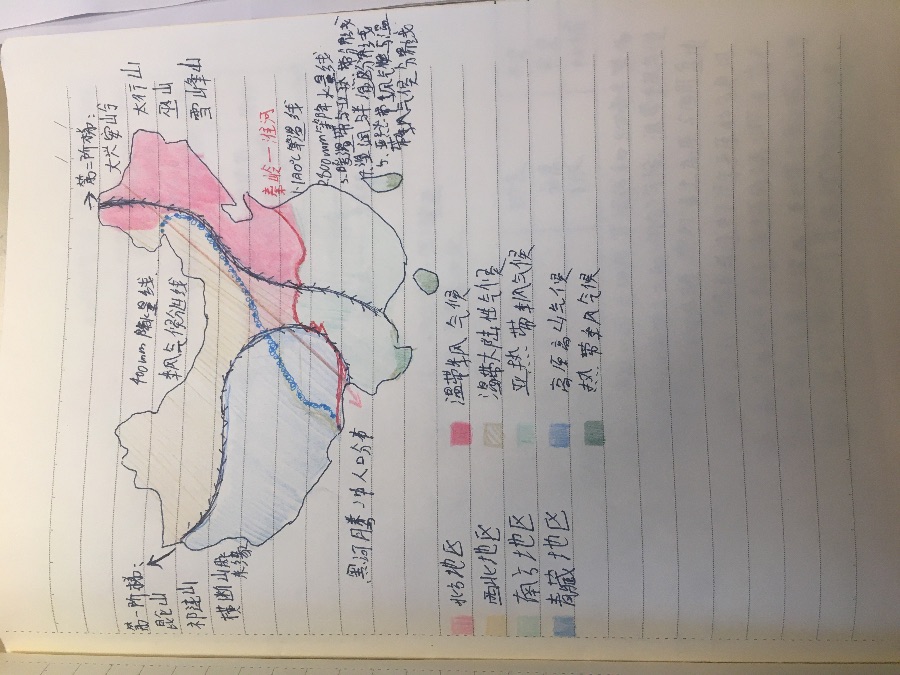 第二阶梯:
大兴安岭
太行山
巫山
雪峰山
第一阶梯:
昆仑山
祁连山
横断山脉
东缘
400mm降水量线
季风气候分界线
秦岭一淮河
1.1月0℃等温线
2.800mm等降水量线
3.暖温带与亚热带分界线
4.湿润与半湿润分界线
5.亚热带季风气候与温
带季风气候分界线
黑河腾冲人口分布
北方地区
西北地区
南方地区
青藏地区
温带季风气候
温带大陆性气候
亚热带季风气候
高原高山气候
热带季风气候